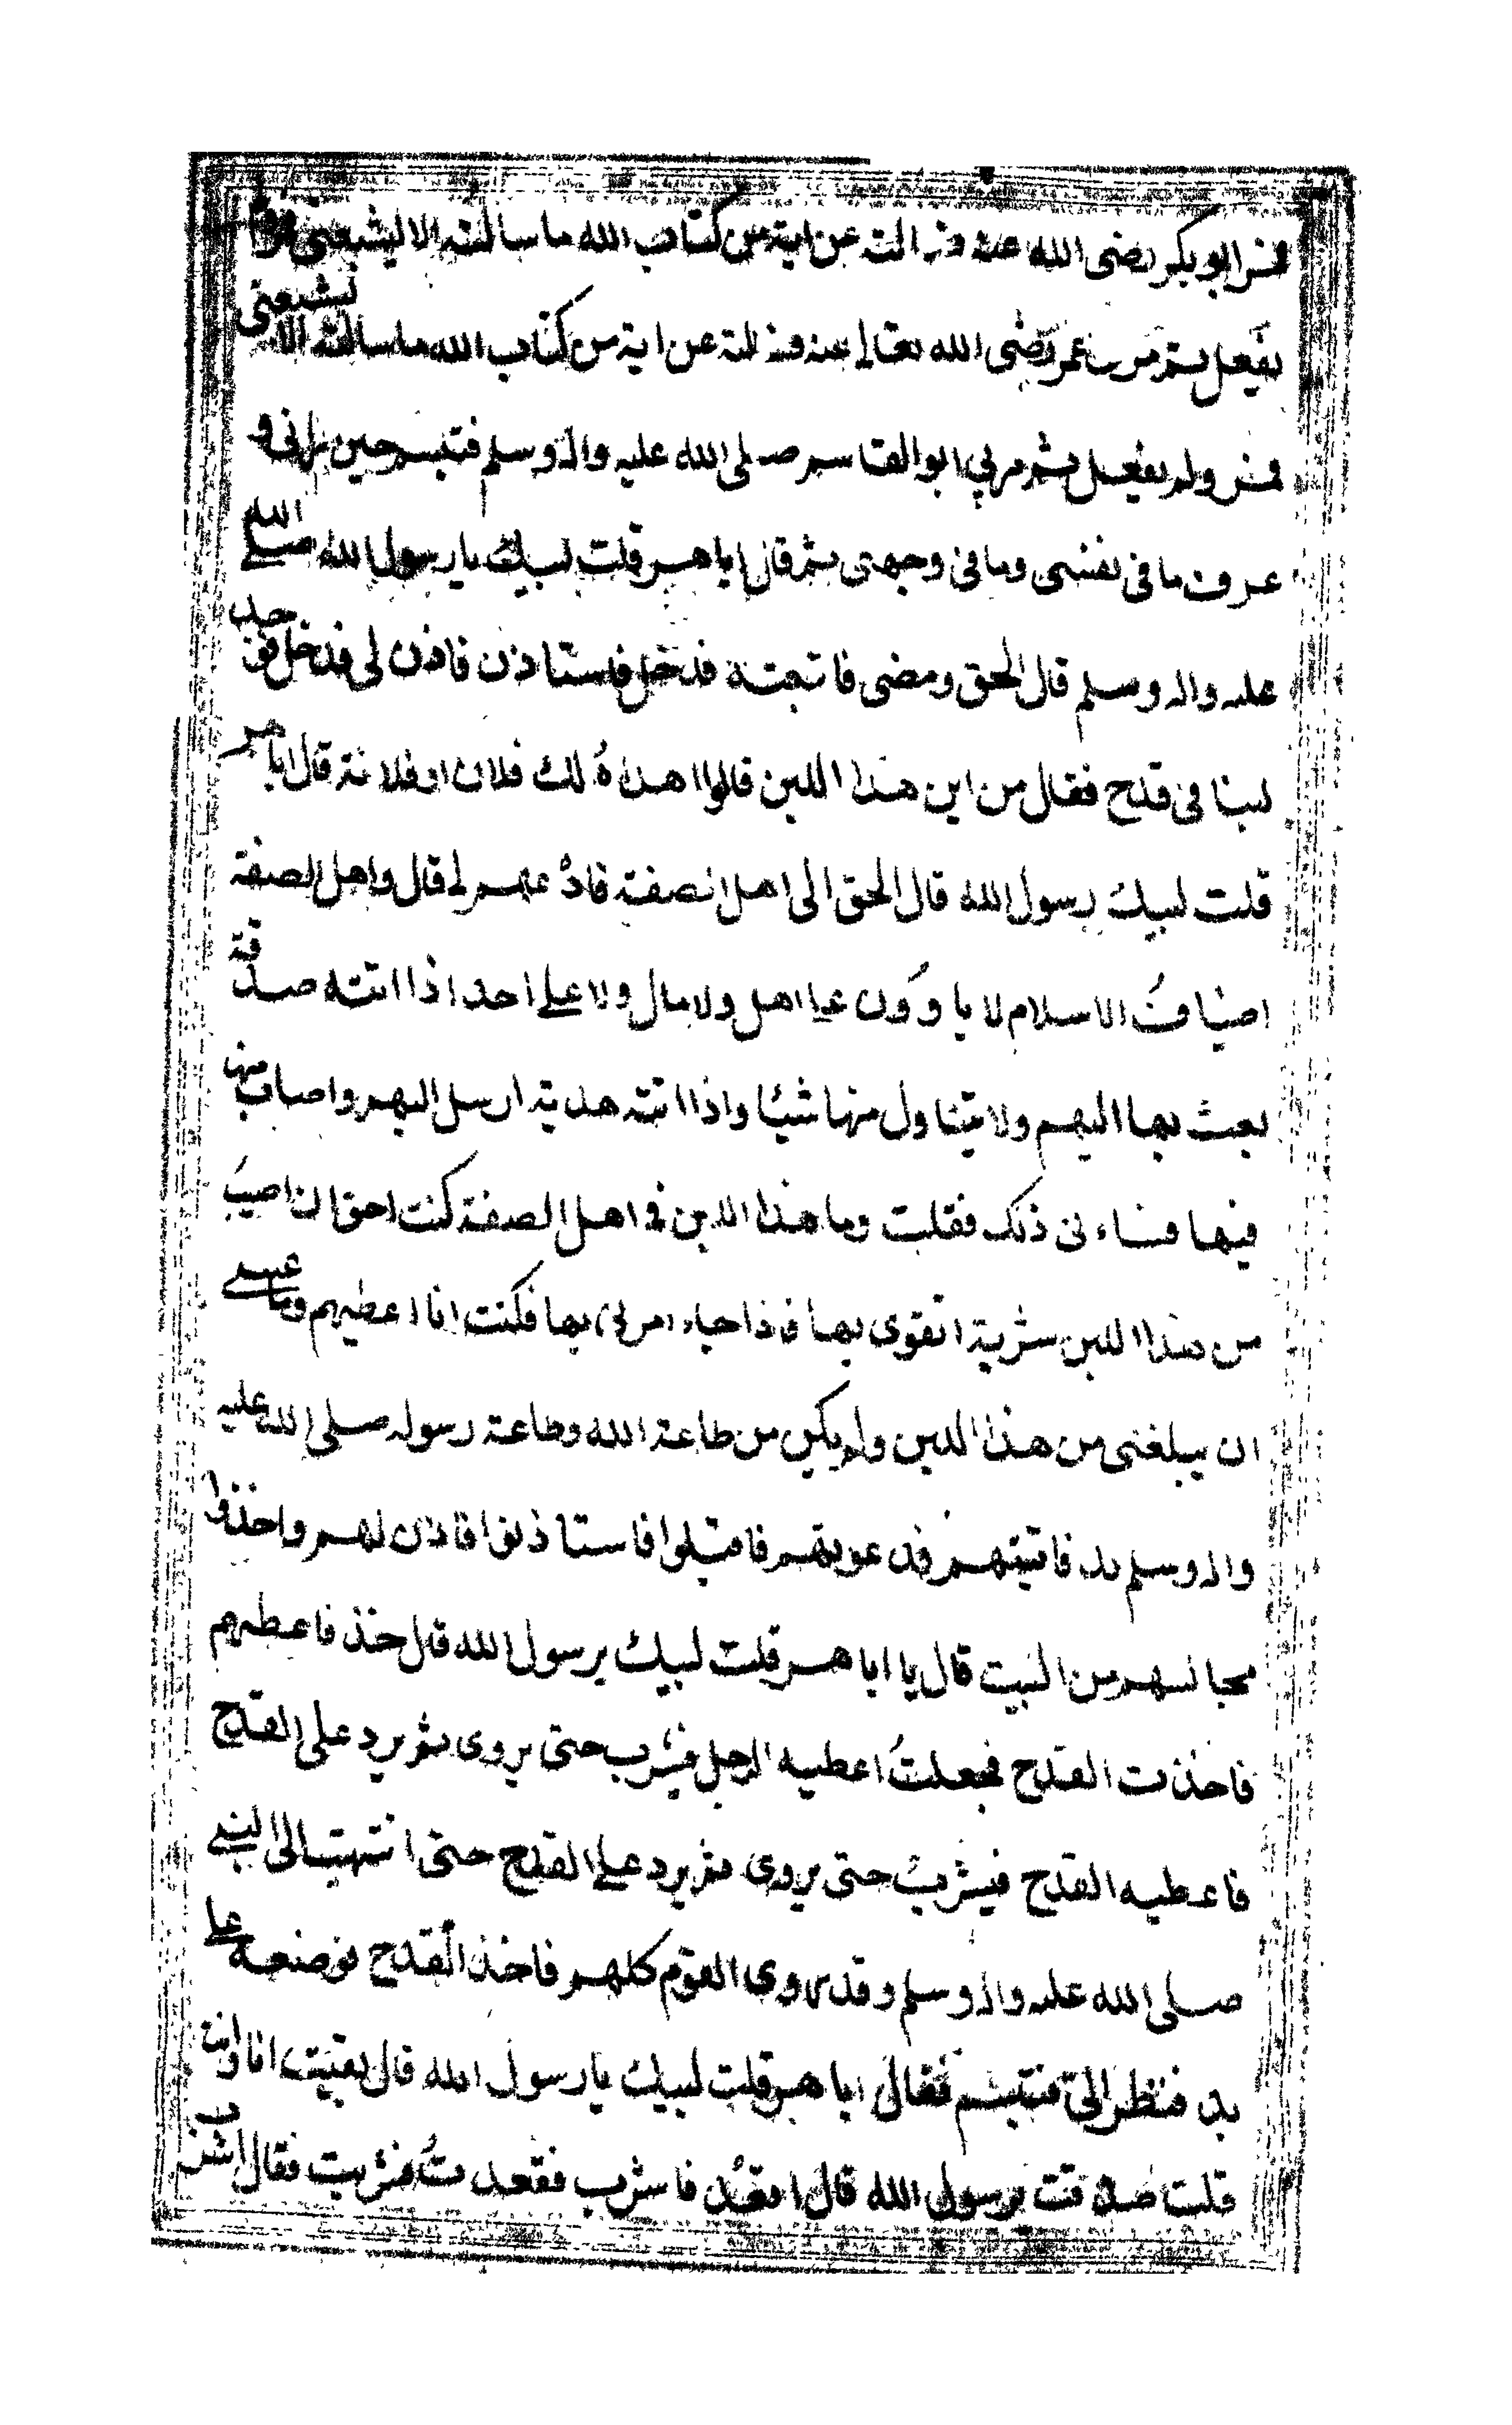 فمر ابو بكر رضى الله عنه فسالته عن اية من كتاب الله ما سالته الا ليشبعنى فمر ولم
يفعل ثم مر بى عمر رضى الله تعالى عنه فسالته عن اية من كتاب الله ما سالته الا ليشبعنى
فمر ولم يفعل ثم مر بى ابو القاسم صلى الله عليه واله وسلم فتبسم حين رانى و
عرف ما فى نفسى وما فى وجهى ثم قال ابا هر قلت لبيك يا رسول الله صلى الله
عليه واله وسلم قال الحق ومضى فاتبعته فدخل فاستاذن فاذن لى فدخل فوجد
لبنا فى قدح فقال من اين هذا اللبن قالوا اهداه لك فلان او فلانة قال ابا هر
قلت لبيك رسول الله قال الحق الى اهل الصفة فادعهم لى قال واهل الصفة
اضيافُ الاسلام لا ياوُون على اهل ولا مال ولا على احد اذا اتته صدقة
بعث بها اليهم ولا يتناول منها شيئا واذا اتته هدية ارسل اليهم واصاب منها
فيها فساء نى ذلك فقلت وما هذا اللبن فى اهل الصفة كنت احق ان اصيبَ
من هذا اللبن شربة اتقوى بها فاذا جاء امرنى بها فكنت انا اعطيهم وما عسى
ان يبلغنى من هذا اللبن ولم يكن من طاعة الله وطاعة رسوله صلى الله عليه
واله وسلم بد فاتيتهم فدعوتهم فاقبلوا فاستاذنوا فاذن لهم واخذوا
مجالسهم من البيت قال يا ابا هر قلت لبيك يرسول الله قال خذ فاعطهم
فاخذت القدح فجعلتُ اعطيه الرجل فيشرب حتى يروى ثم يرد على القدح
فاعطيه القدح فيشرب حتى يروى ثم يرد على القدح حتى انتهيت الى النبى
صلى الله عليه واله وسلم وقد روى القوم كلهم فاخذ القدح فوضعه على
يده فنظر الىّ فتبسم فقال ابا هر قلت لبيك يا رسول الله قال بقيت انا وانت
قلت صدقت يرسول الله قال اقعُد فاشرب فقعدتُ فشربت فقال اشرب